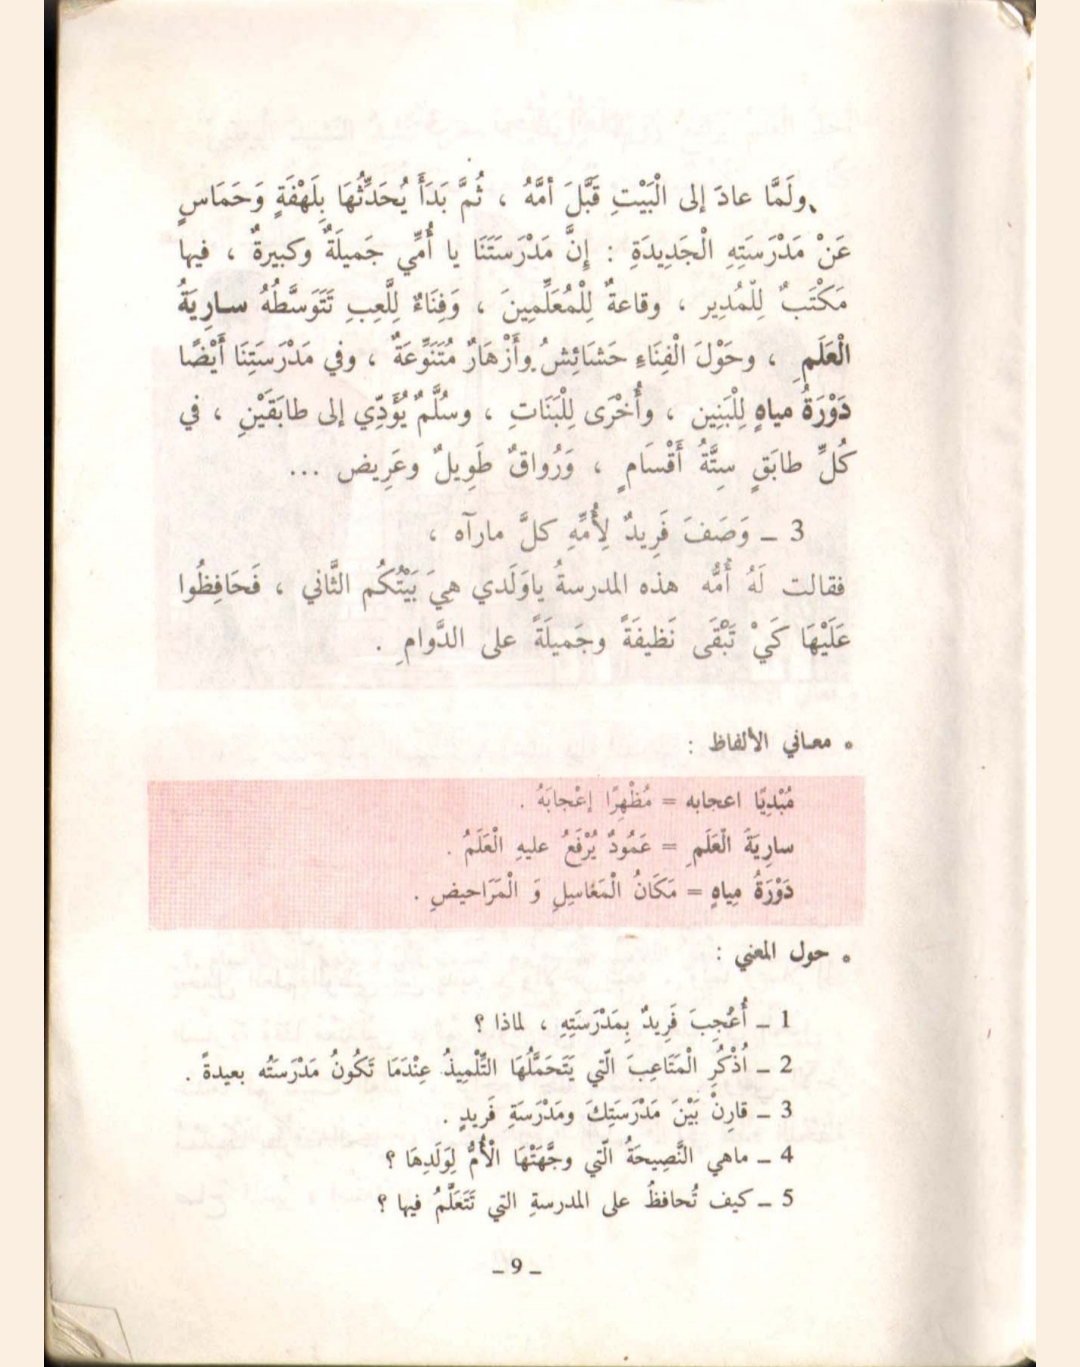 ولَمَّا عادَ إلى الْبَيْتِ قَبَّلَ أمَّهُ ، ثُمَّ بَدَأَ يُحَدِّثُهَا بِلَهْفَةٍ وَحَمَاسٍ
عَنْ مَدْرَسَتِهِ الْجَدِيدَةِ : إِنَّ مَدْرَسَتَنَا يا أُمِّي جَميلَةٌ وكبيرةٌ ، فيها
مَكْتَبٌ لِلْمُدِير ، وقاعةٌ لِلْمُعَلِّمِينَ ، وَفِنَاءٌ لِلَّعِبِ تَتَوَسَّطُهُ سارِيَةُ
الْعَلَمِ ، وحَوْلَ الْفِنَاءِ حَشَائِشُ وأَزْهَارٌ مُتَنَوِّعَةٌ ، وفي مَدْرَسَتِنَا أَيْضًا
دَوْرَةُ مياهٍ لِلْبَنِين ، وأُخْرَى لِلْبَنَاتِ ، وسُلَّمٌ يُؤَدِّي إلى طابَقَيْنِ ، في
كُلِّ طابَقٍ سِتَّةُ أَقْسَامٍ ، وَرُواقٌ طَوِيلٌ وعَرِيض ...
3 ــ وَصَفَ فَرِيدٌ لِأُمِّهِ كلَّ مارآه ،
فقالت لَهُ أُمُّه هذه المدرسةُ ياوَلَدي هِيَ بَيْتُكُم الثَّاني ، فَحَافِظُوا
عَلَيْهَا كَيْ تَبْقَى نَظيفَةً وجَميلَةً على الدَّوامِ .
• معاني الألفاظ :
مُبْدِيًا اعجابه = مُظْهِرًا إعْجابَهُ .
سارِيَةَ الْعَلَمِ = عَمُودٌ يُرْفَعُ عليهِ الْعَلَمُ .
دَوْرَةُ مِياهٍ = مَكَانُ الْمَغاسِيلِ وَ الْمَرَاحيضِ .
• حول المعني :
1 ــ أُعْجِبَ فَرِيدٌ بِمَدْرَسَتِهِ ، لماذا ؟
2 ــ اُذْكُرِ الْمَتَاعِبَ الّتي يَتَحَمَّلُهَا التِّلْمِيذُ عِنْدَمَا تَكُونُ مَدْرَسَتُه بعيدةً .
3 ــ قارِنْ بَيْنَ مَدْرَسَتِكَ ومَدْرَسَةِ فَرِيدٍ .
4 ــ ماهي النَّصِيحَةُ الّتي وجَّهَتْهَا الْأُمُّ لِوَلَدِهَا ؟
5 ــ كيف تُحافظُ على المدرسةِ التي تَتَعَلَّمُ فيها ؟
ــ 9 ــ